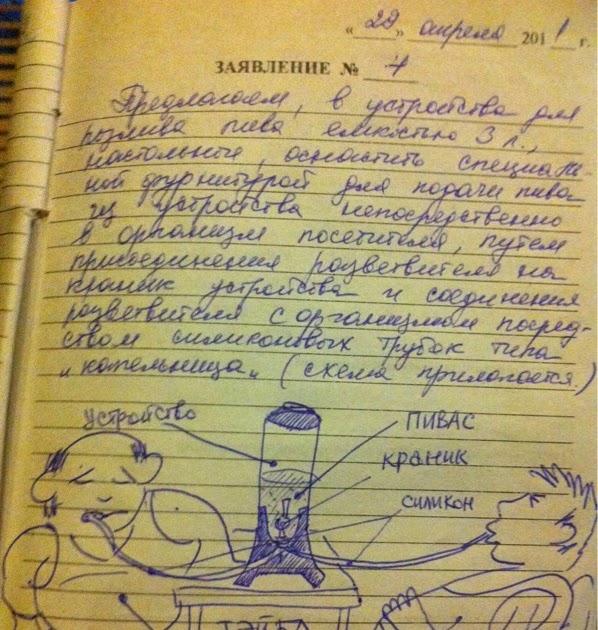 « 29 » апреля 2011 г.
ЗАЯВЛЕНИЕ № 4
Предлагаем, в устройства для
розлива пива емкостью 3 л.,
настольные, оснастить специаль-
ной фурнитурой для подачи пива
из устройства непосредственно
в организм посетителя, путем
присоединения разветвителя на
краник устройства и соединения
разветвителя с организмом посред-
ством силиконовых трубок типа
„капельница„ (схема прилагается.)
устройство
ПИВАС
краник
силикон
ТЭЙБЛ